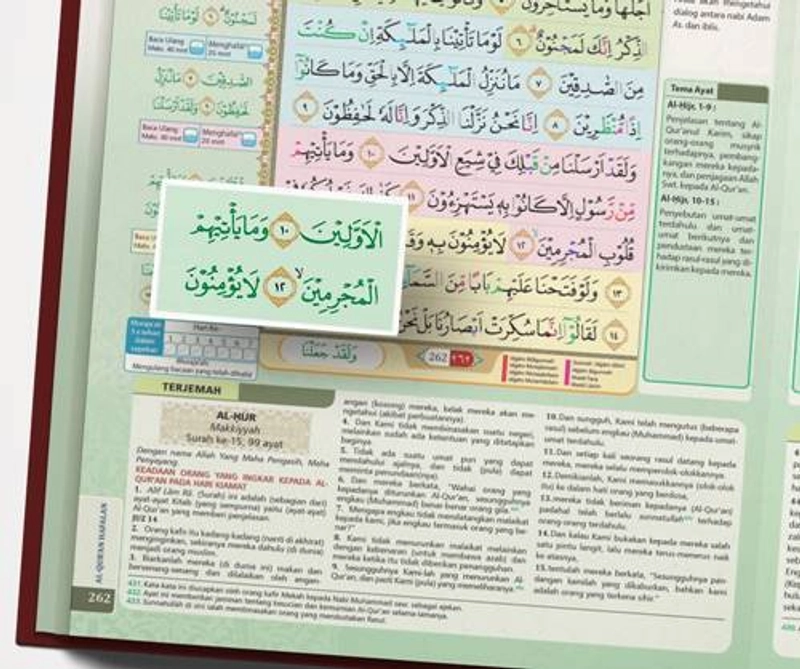 اَجَلَهَا وَمَا يَسْتَأْخِرُوْنَ
الذِّكْرُ اِنَّكَ لَمَجْنُوْنٌ ٦ لَوْمَا تَأْتِيْنَا بِالْمَلٰۤىِٕكَةِ اِنْ كُنْتَ
مِنَ الصّٰدِقِيْنَ ٧ مَا نُنَزِّلُ الْمَلٰۤىِٕكَةَ اِلَّا بِالْحَقِّ وَمَا كَانُوْٓا
اِذًا مُّنْظَرِيْنَ ٨ اِنَّا نَحْنُ نَزَّلْنَا الذِّكْرَ وَاِنَّا لَهٗ لَحٰفِظُوْنَ ٩
وَلَقَدْ اَرْسَلْنَا مِنْ قَبْلِكَ فِيْ شِيَعِ الْاَوَّلِيْنَ ١٠ وَمَا يَأْتِيْهِمْ
مِّنْ رَّسُوْلٍ اِلَّا كَانُوْا بِهٖ يَسْتَهْزِءُوْنَ ١١
قُلُوْبِ الْمُجْرِمِيْنَ ١٢ لَا يُؤْمِنُوْنَ بِهٖ
وَلَوْ فَتَحْنَا عَلَيْهِمْ بَابًا مِّنَ السَّمَاۤءِ ١٣
لَقَالُوْٓا اِنَّمَا سُكِّرَتْ اَبْصَارُنَا بَلْ نَحْنُ ١٤
الْاَوَّلِيْنَ ١٠ وَمَا يَأْتِيْهِمْ
الْمُجْرِمِيْنَ ١٢ لَا يُؤْمِنُوْنَ
وَلَقَدْ جَعَلْنَا
262 ٢٦٢
dialog antara nabi Adam
As. dan iblis.
Tema Ayat
Al-Hijr, 1-9 :
Penjelasan tentang Al-
Qur'anul Karim, sikap
orang-orang musyrik
terhadapnya, pembang-
kangan mereka kepada-
nya, dan penjagaan Allah
Swt. kepada Al-Qur'an.
Al-Hijr, 10-15 :
Penyebutan umat-umat
terdahulu dan umat-
umat berikutnya dan
pendustaan mereka ter-
hadap rasul-rasul yang di-
kirimkan kepada mereka.
TERJEMAH
AL-HIJR
Makkiyyah
Surah ke-15, 99 ayat
Dengan nama Allah Yang Maha Pengasih, Maha
Penyayang.
KEADAAN ORANG YANG INGKAR KEPADA AL-
QUR'AN PADA HARI KIAMAT
1. Alif Lām Rā. (Surah) ini adalah (sebagian dari)
ayat-ayat Kitab (yang sempurna) yaitu (ayat-ayat)
Al-Qur'an yang memberi penjelasan.
JUZ 14
2. Orang kafir itu kadang-kadang (nanti di akhirat)
menginginkan, sekiranya mereka dahulu (di dunia)
menjadi orang muslim.
3. Biarkanlah mereka (di dunia ini) makan dan
bersenang-senang dan dilalaikan oleh angan-
angan (kosong) mereka, kelak mereka akan me-
ngetahui (akibat perbuatannya).
4. Dan Kami tidak membinasakan suatu negeri,
melainkan sudah ada ketentuan yang ditetapkan
baginya.
5. Tidak ada suatu umat pun yang dapat
mendahului ajalnya, dan tidak (pula) dapat
meminta penundaan(nya).
6. Dan mereka berkata, "Wahai orang yang
kepadanya diturunkan Al-Qur'an, sesungguhnya
engkau (Muhammad) benar-benar orang gila.
7. Mengapa engkau tidak mendatangkan malaikat
kepada kami, jika engkau termasuk orang yang be-
nar?"
8. Kami tidak menurunkan malaikat melainkan
dengan kebenaran (untuk membawa azab) dan
mereka ketika itu tidak diberikan penangguhan.
9. Sesungguhnya Kami-lah yang menurunkan Al-
Qur'an, dan pasti Kami (pula) yang memeliharanya.
10. Dan sungguh, Kami telah mengutus (beberapa
rasul) sebelum engkau (Muhammad) kepada umat-
umat terdahulu.
11. Dan setiap kali seorang rasul datang kepada
mereka, mereka selalu memperolok-olokkannya.
12. Demikianlah, Kami memasukkannya (olok-olok
itu) ke dalam hati orang yang berdosa,
13. mereka tidak beriman kepadanya (Al-Qur'an)
padahal telah berlalu sunnatullah terhadap
orang-orang terdahulu.
14. Dan kalau Kami bukakan kepada mereka salah
satu pintu langit, lalu mereka terus-menerus naik
ke atasnya,
15. tentulah mereka berkata, "Sesungguhnya pan-
dangan kamilah yang dikaburkan, bahkan kami
adalah orang yang terkena sihir."
431. Kata-kata ini diucapkan oleh orang kafir Mekah kepada Nabi Muhammad saw. sebagai ejekan.
432. Ayat ini memberikan jaminan tentang kesucian dan kemurnian Al-Qur'an selama-lamanya.
433. Sunnatullah di sini ialah membinasakan orang yang mendustakan Rasul.
AL-QUR'AN HAFALAN
262